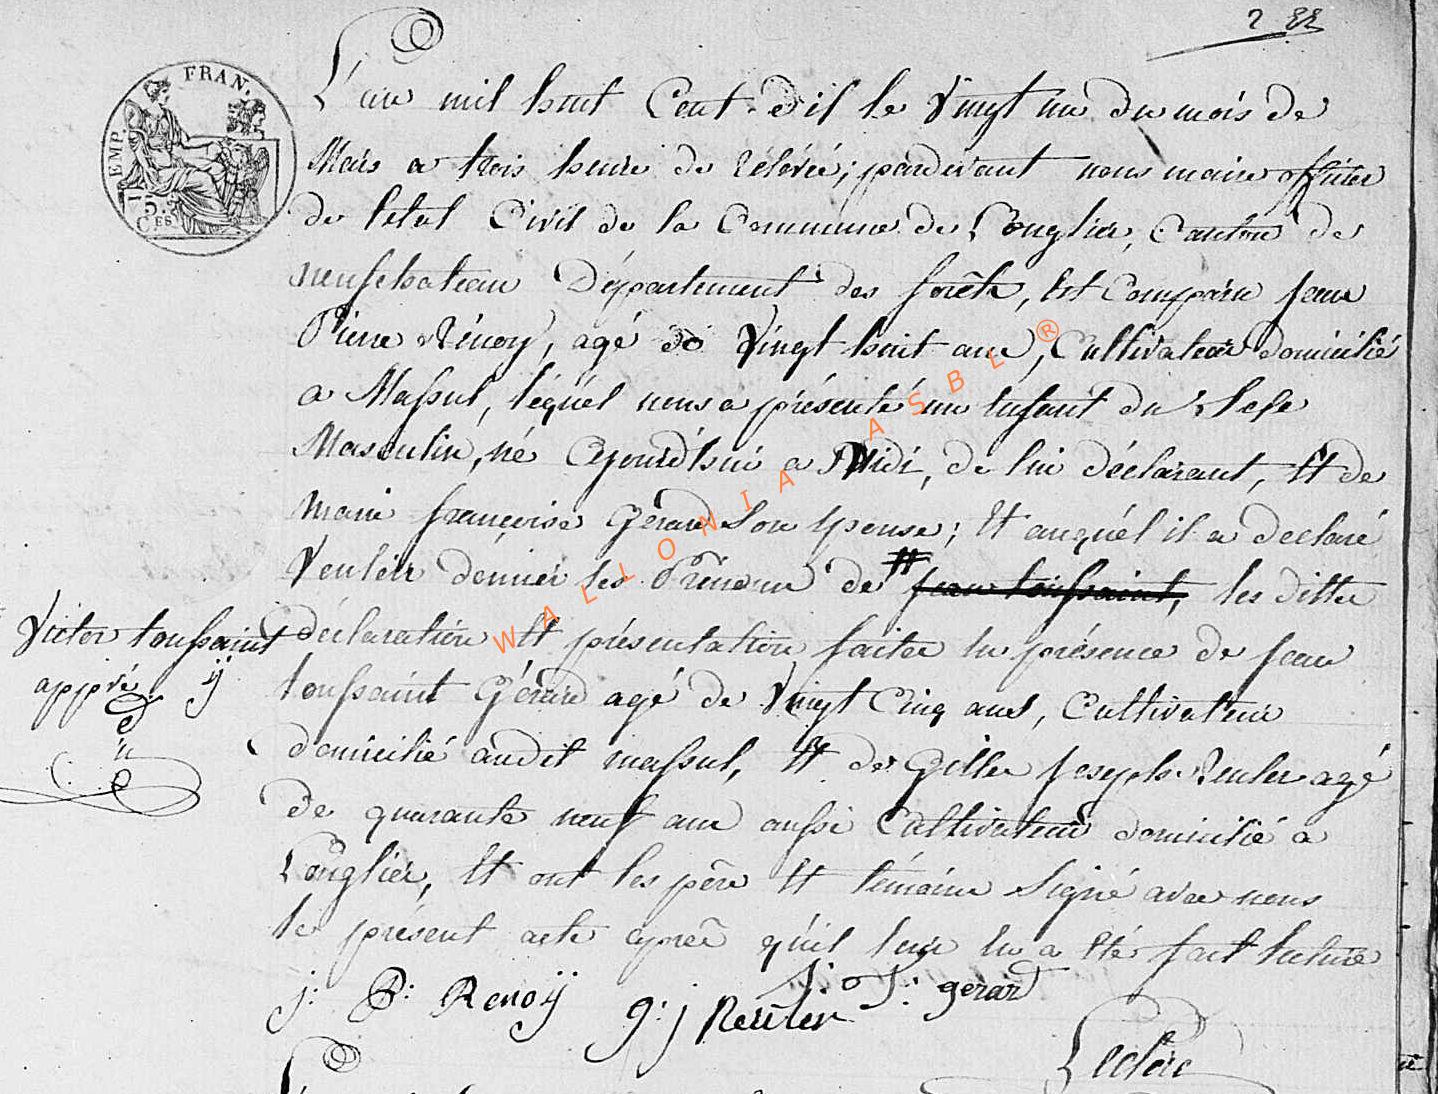 2 22
EMP. FRAN.
5 CES
L'an mil huit Cent dix le Vingt un du mois de
Mars a trois heure de rélévée; pardevant nous maire officier
de l'etat Civil de la Commune de Longlier, Canton de
neufchateau Département des forêts, Est Comparu jean
Pierre Rénoy, agé de Vingt huit ans, Cultivateur domicilié
a Massul, léquél nous a présenté un Enfant du Sexe
Masculin, né Cejourd'hui a Midi, de lui déclarant, Et de
Marie françoise Gérard Son Epouse; Et auquél il a declaré
Vouloir donner les Prénoms de # jean toussaint, les dittes
Victor toussaint
appvé
déclaration Et présentation faites En présence de jean
toussaint Gérard agé de Vingt Cinq ans, Cultivateur
domicilié audit massul, Et de Gille joseph Reuler agé
de quarante neuf ans aussi Cultivateur domicilié a
Longlier, Et ont les pére Et témoins Signé avec nous
le présent acte aprés qu'il leur En a Eté fait lecture
j: P: Renoÿ
g: j Reuler
j: T: gerard
Leclerc
WALLONIA ASBL ®